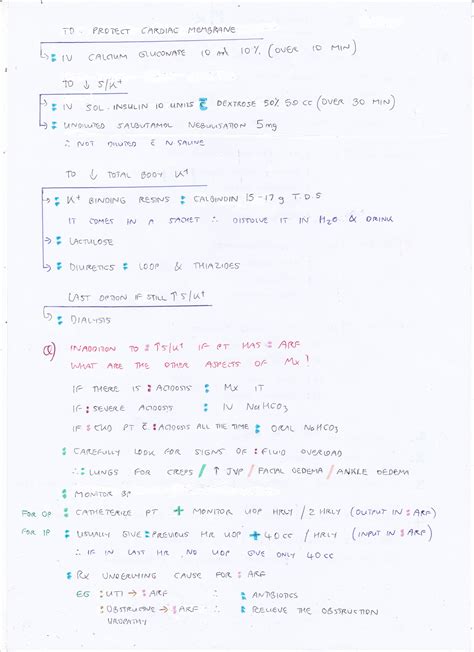 TO . PROTECT CARDIAC MEMBRANE
IV CALCIUM GLUCONATE 10 ml 10% (OVER 10 MIN)
TO ↓ S/K+
IV SOL. INSULIN 10 UNITS c̄ DEXTROSE 50% 50 cc (OVER 30 MIN)
UNDILUTED SALBUTAMOL NEBULISATION 5 mg
∴ NOT DILUTED c̄ N SALINE
TO ↓ TOTAL BODY K+
K+ BINDING RESINS : CALBINDIN 15-17 g T.D.S
IT COMES IN A SACHET ∴ DISSOLVE IT IN H2O & DRINK
LACTULOSE
DIURETICS : LOOP & THIAZIDES
LAST OPTION IF STILL ↑ S/K+
DIALYSIS
Q) INADDITION TO : ↑ S/K+ IF PT HAS : ARF
WHAT ARE THE OTHER ASPECTS OF Mx ?
IF THERE IS : ACIDOSIS : Mx IT
IF : SEVERE ACIDOSIS : IV NaHCO3
IF : CKD PT c̄ : ACIDOSIS ALL THE TIME : ORAL NaHCO3
: CAREFULLY LOOK FOR SIGNS OF : FLUID OVERLOAD
∴ : LUNGS FOR CREPS / ↑ JVP / FACIAL OEDEMA / ANKLE OEDEMA
: MONITOR BP
FOR OP : CATHETERIZE PT + MONITOR UOP HRLY / 2 HRLY (OUTPUT IN : ARF)
FOR IP : USUALLY GIVE : PREVIOUS HR UOP + 40 cc / HRLY (INPUT IN : ARF)
∴ IF IN LAST HR NO UOP GIVE ONLY 40 cc
: Rx UNDERLYING CAUSE FOR : ARF
EG : UTI → : ARF ∴ : ANTIBIOTICS
: OBSTRUCTIVE → : ARF ∴ : RELIEVE THE OBSTRUCTION
UROPATHY